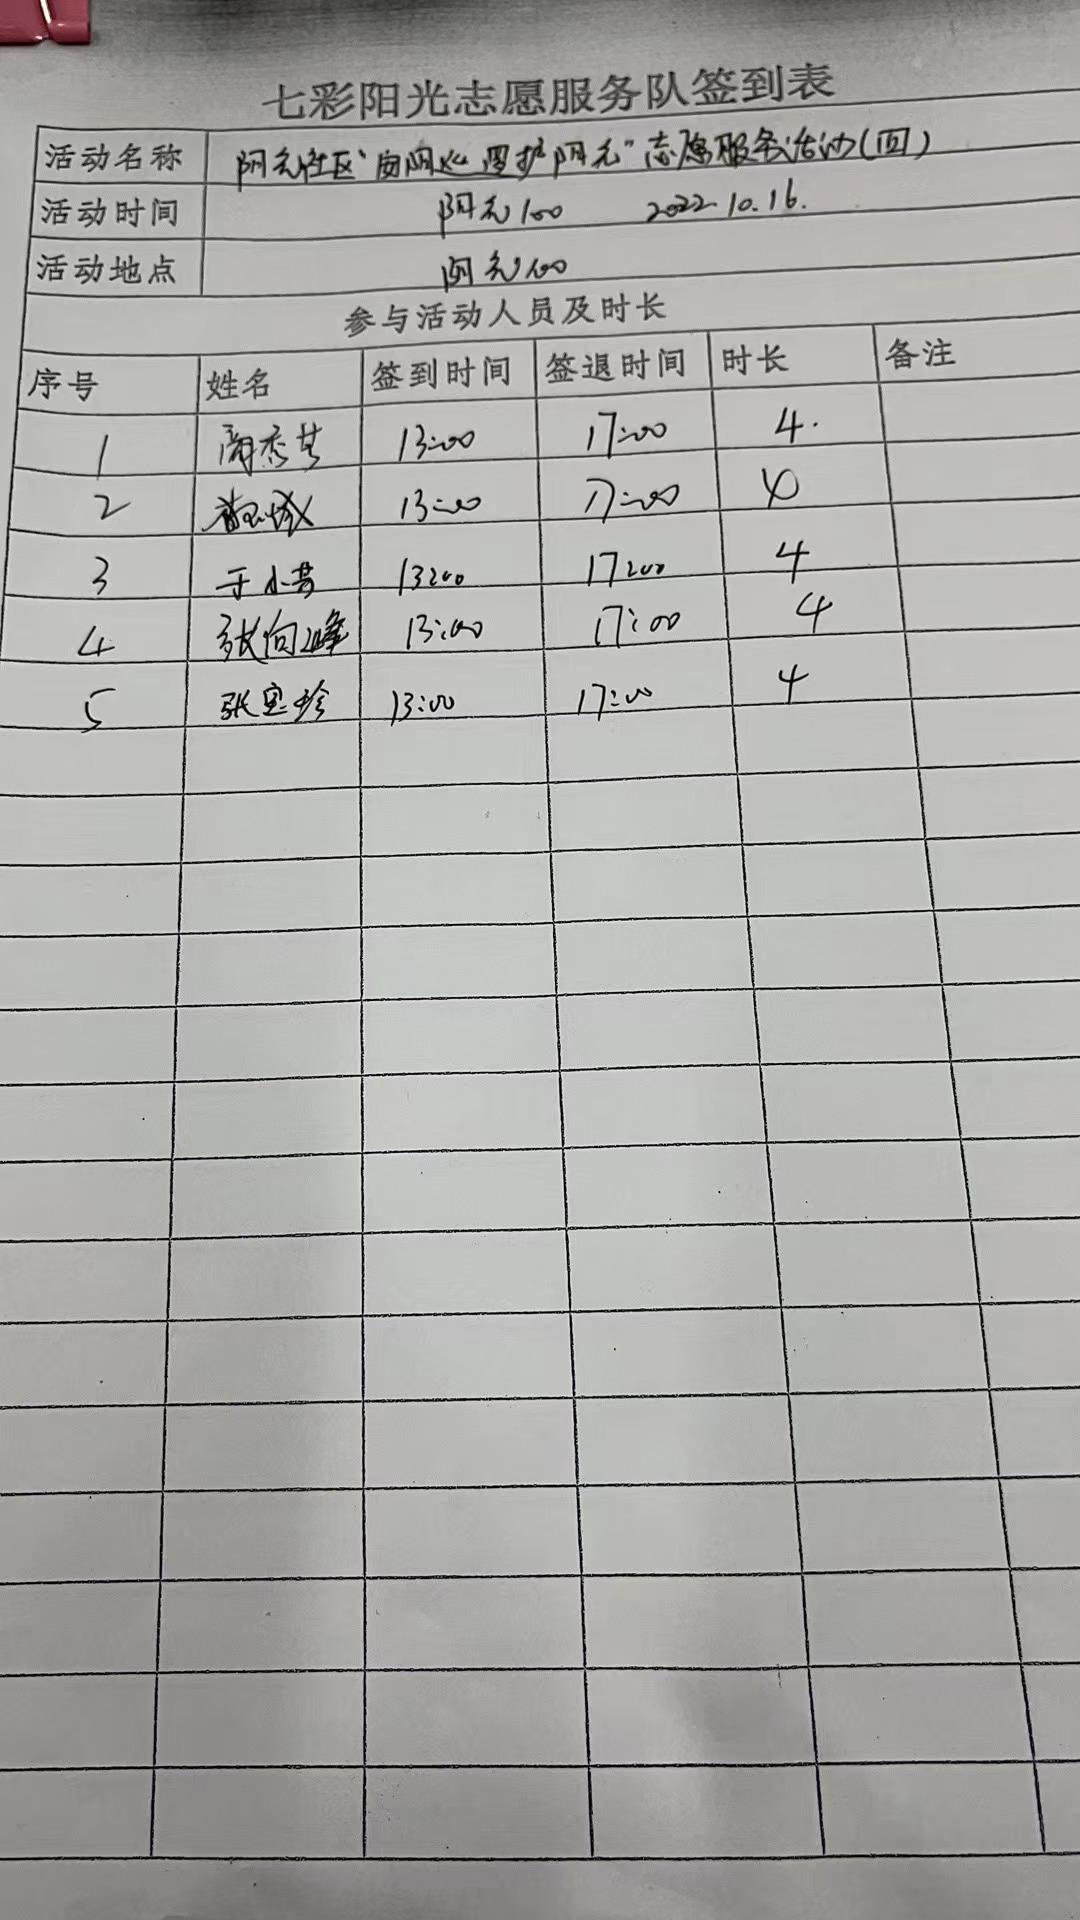 七彩阳光志愿服务队签到表
活动名称 阳光社区 阳光"志愿服务活动(四)
活动时间 阳光100 2022.10.16.
活动地点 阳光100
参与活动人员及时长
序号 姓名 签到时间 签退时间 时长 备注
1 13:00 17:00 4.
2 13:00 17:00 4
3 于小芸 13:00 17:00 4
4 张向峰 13:00 17:00 4
5 张宝珍 13:00 17:00 4